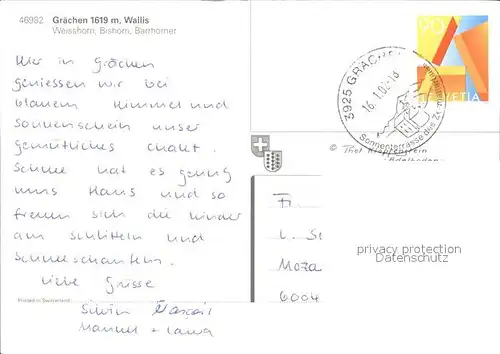 46982 Grächen 1619 m, Wallis
Weisshorn, Bishorn, Barrhorner
Hier in Grächen
geniessen wir bei
blauem Himmel und
Sonnenschein unser
gemütliches Chalet.
Schnee hat es genug
ums Haus und so
freuen sich die Kinder
am schlitteln und
Schneeschaufeln.
Liebe Grüsse
Silvia Marcel
Manuel + Lara
Printed in Switzerland
90
HELVETIA
3925 GRÄCHEN
16.1.02-18
Sonnenterrasse des Zermattertales
© Thel Klopfenstein
Adelboden
Fr.
L. St
Moza
6004
privacy protection
Datenschutz